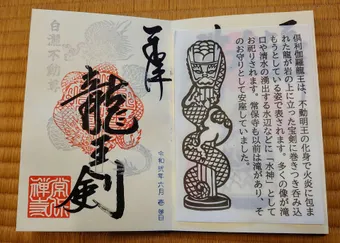 奉拝
白瀧不動尊
龍王剣
令和弐年六月壱日
倶利伽羅龍王は、不動明王の化身で火炎に包ま
れた龍が岩の上に立った宝剣に巻きつき呑み込
もうとしている姿で表されます。多くの像が滝
口や清水の湧出する水辺などに「水神」として
お祀りされます。常保寺も以前は滝があり、そ
のお守りとして安座していました。